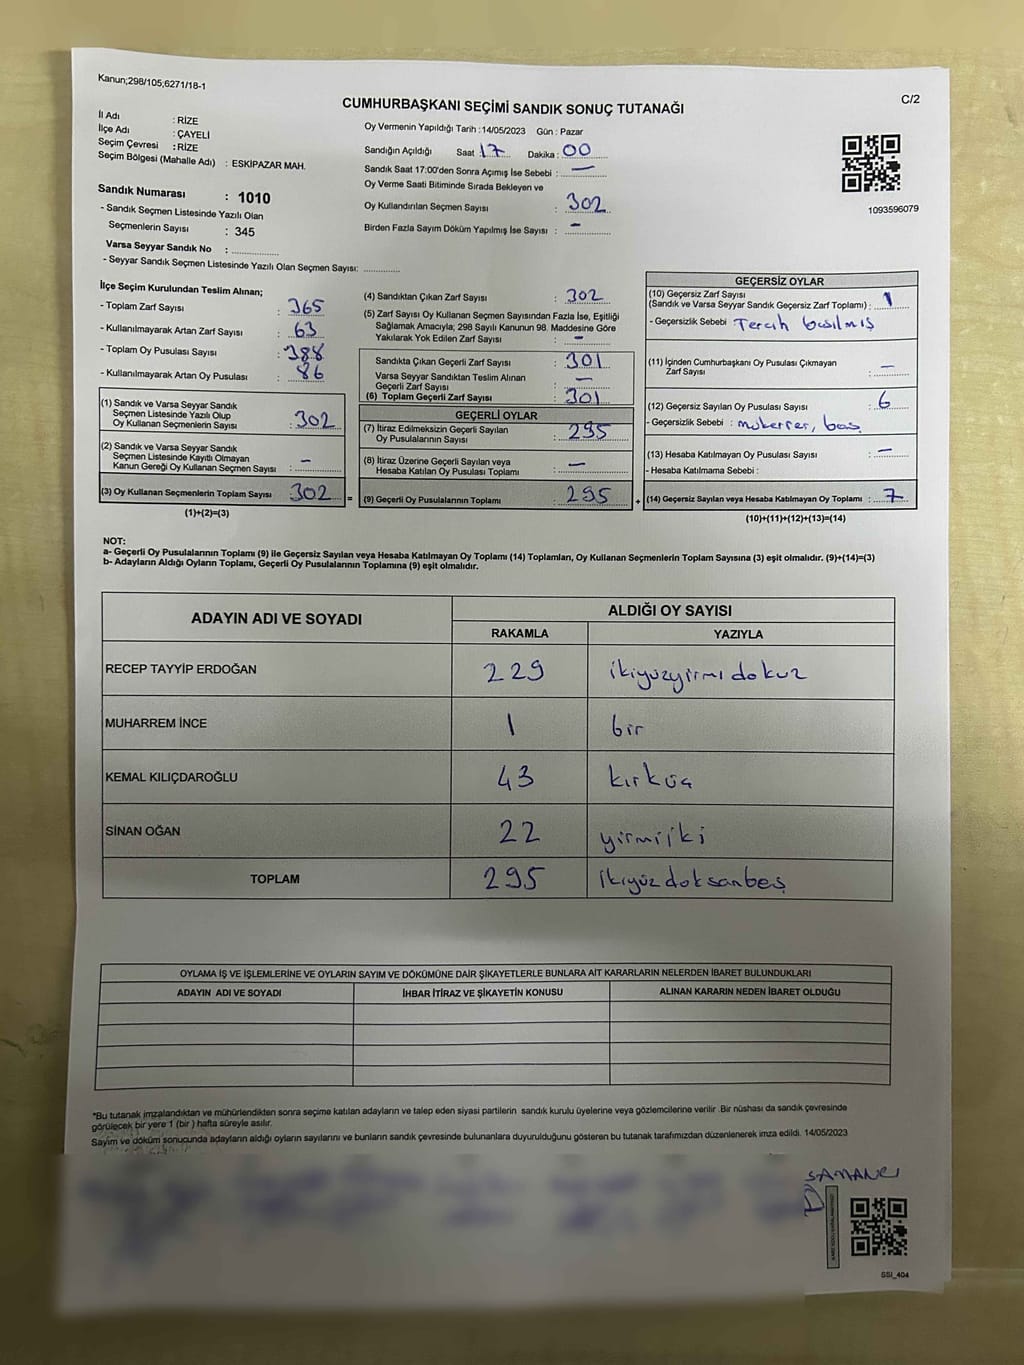 Kanun;298/105;6271/18-1
C/2
CUMHURBAŞKANI SEÇİMİ SANDIK SONUÇ TUTANAĞI
İl Adı : RİZE
İlçe Adı : ÇAYELİ
Seçim Çevresi : RİZE
Seçim Bölgesi (Mahalle Adı) : ESKİPAZAR MAH.
Sandık Numarası : 1010
- Sandık Seçmen Listesinde Yazılı Olan
Seçmenlerin Sayısı : 345
Varsa Seyyar Sandık No : ..............
- Seyyar Sandık Seçmen Listesinde Yazılı Olan Seçmen Sayısı: ............
Oy Vermenin Yapıldığı Tarih : 14/05/2023 Gün : Pazar
Sandığın Açıldığı Saat 17 Dakika : 00
Sandık Saat 17:00'den Sonra Açımış İse Sebebi : —
Oy Verme Saati Bitiminde Sırada Bekleyen ve
Oy Kullandırılan Seçmen Sayısı : 302
Birden Fazla Sayım Döküm Yapılmış İse Sayısı : -
1093596079
İlçe Seçim Kurulundan Teslim Alınan;
- Toplam Zarf Sayısı : 365
- Kullanılmayarak Artan Zarf Sayısı : 63
- Toplam Oy Pusulası Sayısı : 388
- Kullanılmayarak Artan Oy Pusulası : 86
(1) Sandık ve Varsa Seyyar Sandık
Seçmen Listesinde Yazılı Olup
Oy Kullanan Seçmenlerin Sayısı : 302
(2) Sandık ve Varsa Seyyar Sandık
Seçmen Listesinde Kayıtlı Olmayan
Kanun Gereği Oy Kullanan Seçmen Sayısı : -
(3) Oy Kullanan Seçmenlerin Toplam Sayısı 302 =
(1)+(2)=(3)
(4) Sandıktan Çıkan Zarf Sayısı : 302
(5) Zarf Sayısı Oy Kullanan Seçmen Sayısından Fazla İse, Eşitliği
Sağlamak Amacıyla; 298 Sayılı Kanunun 98. Maddesine Göre
Yakılarak Yok Edilen Zarf Sayısı : -
Sandıkta Çıkan Geçerli Zarf Sayısı : 301
Varsa Seyyar Sandıktan Teslim Alınan
Geçerli Zarf Sayısı : —
(6) Toplam Geçerli Zarf Sayısı : 301
GEÇERLİ OYLAR
(7) İtiraz Edilmeksizin Geçerli Sayılan
Oy Pusulalarının Sayısı : 295
(8) İtiraz Üzerine Geçerli Sayılan veya
Hesaba Katılan Oy Pusulası Toplamı : —
(9) Geçerli Oy Pusulalarının Toplamı : 295 +
GEÇERSİZ OYLAR
(10) Geçersiz Zarf Sayısı
(Sandık ve Varsa Seyyar Sandık Geçersiz Zarf Toplamı) : 1
- Geçersizlik Sebebi Tercih basılmış
(11) İçinden Cumhurbaşkanı Oy Pusulası Çıkmayan
Zarf Sayısı : —
(12) Geçersiz Sayılan Oy Pusulası Sayısı : 6
- Geçersizlik Sebebi : mükerrer, boş
(13) Hesaba Katılmayan Oy Pusulası Sayısı : —
- Hesaba Katılmama Sebebi :
(14) Geçersiz Sayılan veya Hesaba Katılmayan Oy Toplamı : 7
(10)+(11)+(12)+(13)=(14)
NOT:
a- Geçerli Oy Pusulalarının Toplamı (9) ile Geçersiz Sayılan veya Hesaba Katılmayan Oy Toplamı (14) Toplamları, Oy Kullanan Seçmenlerin Toplam Sayısına (3) eşit olmalıdır. (9)+(14)=(3)
b- Adayların Aldığı Oyların Toplamı, Geçerli Oy Pusulalarının Toplamına (9) eşit olmalıdır.
ADAYIN ADI VE SOYADI ALDIĞI OY SAYISI
RAKAMLA YAZIYLA
RECEP TAYYİP ERDOĞAN 229 ikiyüzyirmidokuz
MUHARREM İNCE 1 bir
KEMAL KILIÇDAROĞLU 43 kırküç
SİNAN OĞAN 22 yirmiiki
TOPLAM 295 ikiyüzdoksanbeş
OYLAMA İŞ VE İŞLEMLERİNE VE OYLARIN SAYIM VE DÖKÜMÜNE DAİR ŞİKAYETLERLE BUNLARA AİT KARARLARIN NELERDEN İBARET BULUNDUKLARI
ADAYIN ADI VE SOYADI İHBAR İTİRAZ VE ŞİKAYETİN KONUSU ALINAN KARARIN NEDEN İBARET OLDUĞU
*Bu tutanak imzalandıktan ve mühürlendikten sonra seçime katılan adayların ve talep eden siyasi partilerin sandık kurulu üyelerine veya gözlemcilerine verilir .Bir nüshası da sandık çevresinde
görülecek bir yere 1 (bir ) hafta süreyle asılır.
Sayım ve döküm sonucunda adayların aldığı oyların sayılarını ve bunların sandık çevresinde bulunanlara duyurulduğunu gösteren bu tutanak tarafımızdan düzenlenerek imza edildi. 14/05/2023
SSI_404